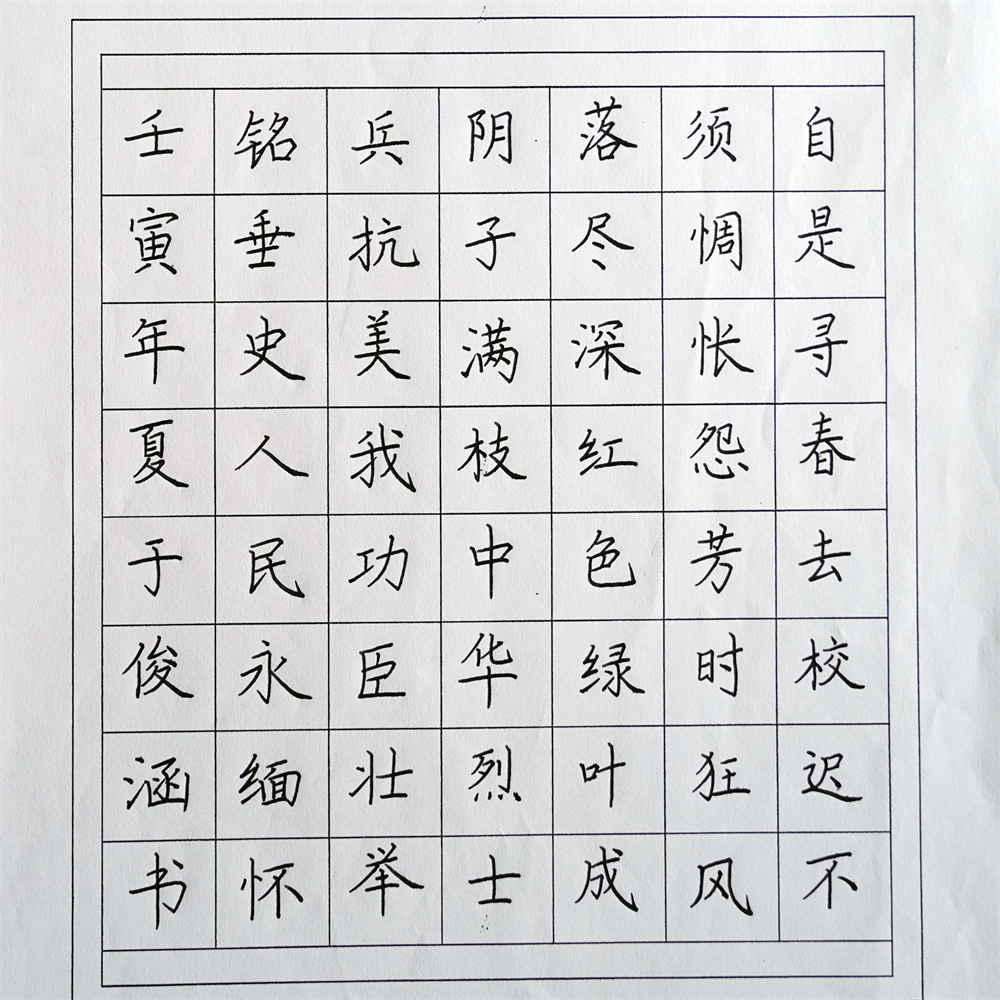 自是寻春去校迟不
须惆怅怨芳时狂风
落尽深红色绿叶成
阴子满枝中华烈士
兵抗美我功臣壮举
铭垂史人民永缅怀
壬寅年夏于俊涵书